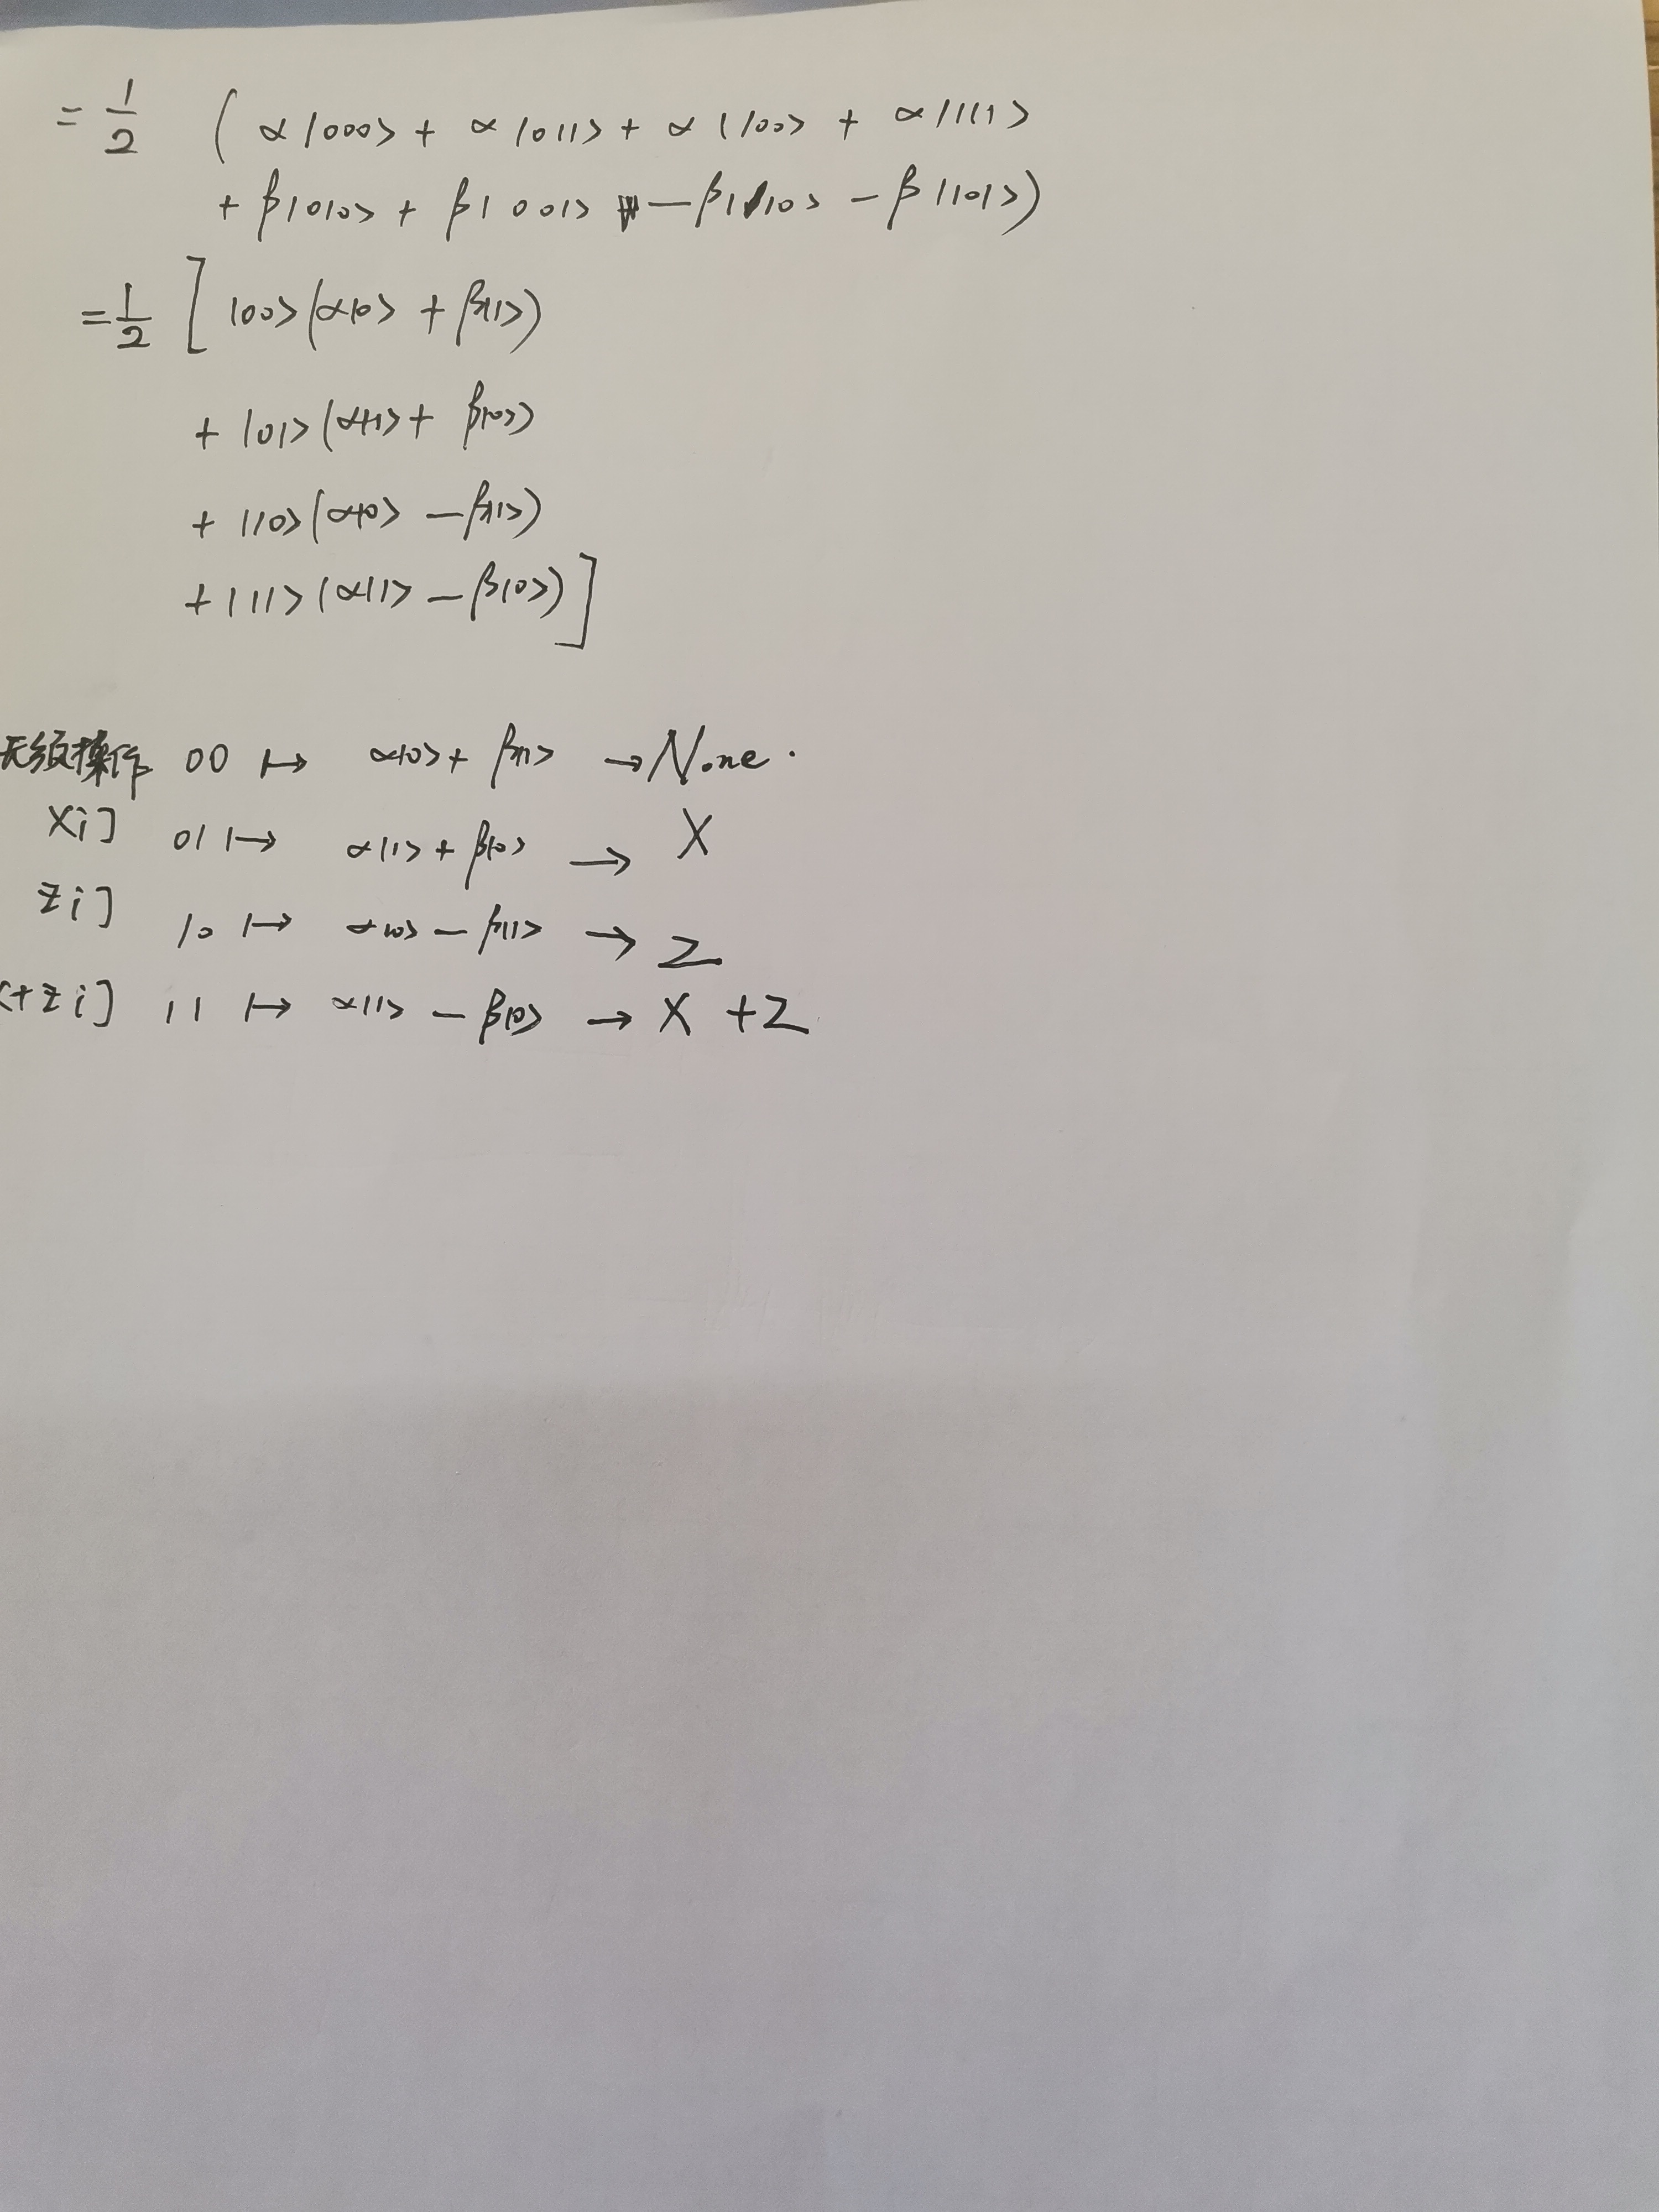 = 1/2 ( α|000> + α|011> + α|100> + α|111>
+ β|010> + β|001> - β|110> - β|101>)
= 1/2 [ |00>(α|0> + β|1>)
+ |01>(α|1> + β|0>)
+ |10>(α|0> - β|1>)
+ |11>(α|1> - β|0>) ]
无须操作 00 ↦ α|0> + β|1> → None.
X门 01 ↦ α|1> + β|0> → X
Z门 10 ↦ α|0> - β|1> → Z
X+Z门 11 ↦ α|1> - β|0> → X+Z